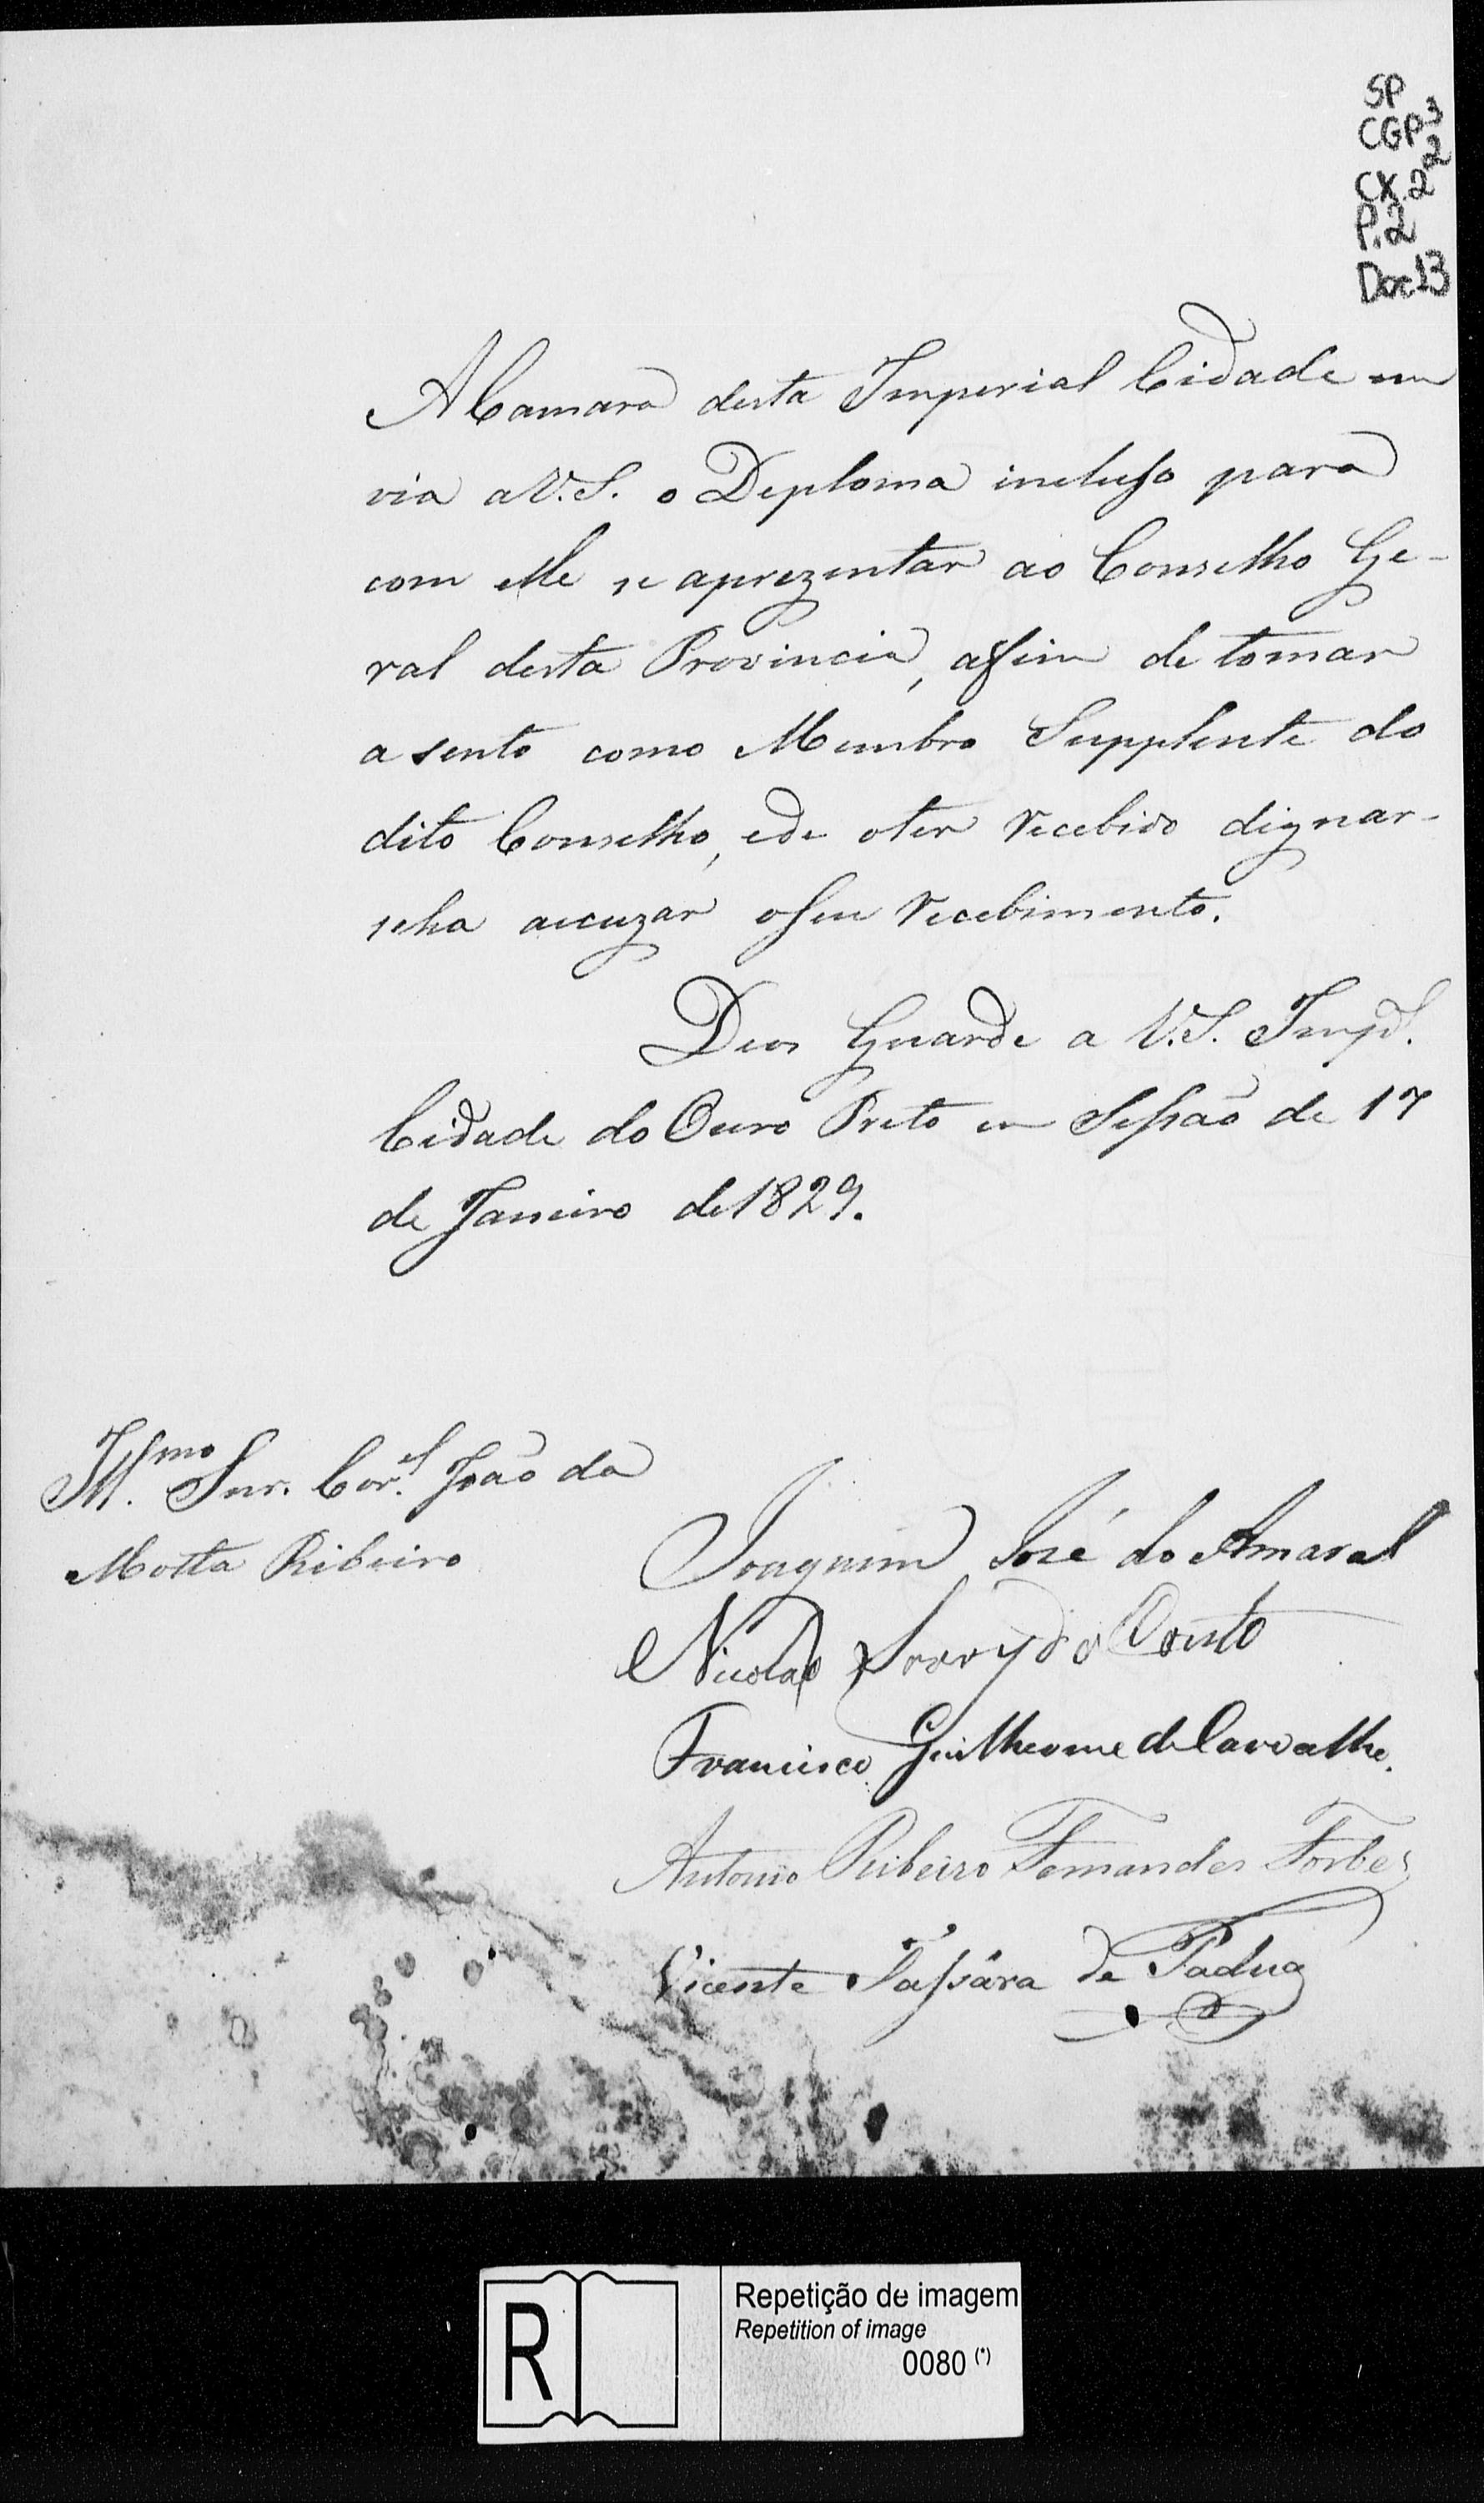 SP
CGP3
2
CX.2
P.2
Doc13
A Camara desta Imperial Cidade en
via a V.S. o Deploma incluso para
com elle se aprezentar ao Conselho Ge-
ral desta Provincia, afim de tomar
a sento como Membro Supplente do
dito Conselho, e de o ter recebido dignar-
seha accuzar o seu recebimento.
Deos Guarde a V.S. Impal.
Cidade do Ouro Preto em Sessão de 17
de Janeiro de 1829.
Illmo. Snr. Corel. João da
Motta Ribeiro
Joaquim José do Amaral
Nicolao do Couto
Francisco Guilherme de Carvalho.
Antonio Ribeiro Fernandes Forbes
Vicente Tassára de Padua
R
Repetição de imagem
Repetition of image
0080 (*)